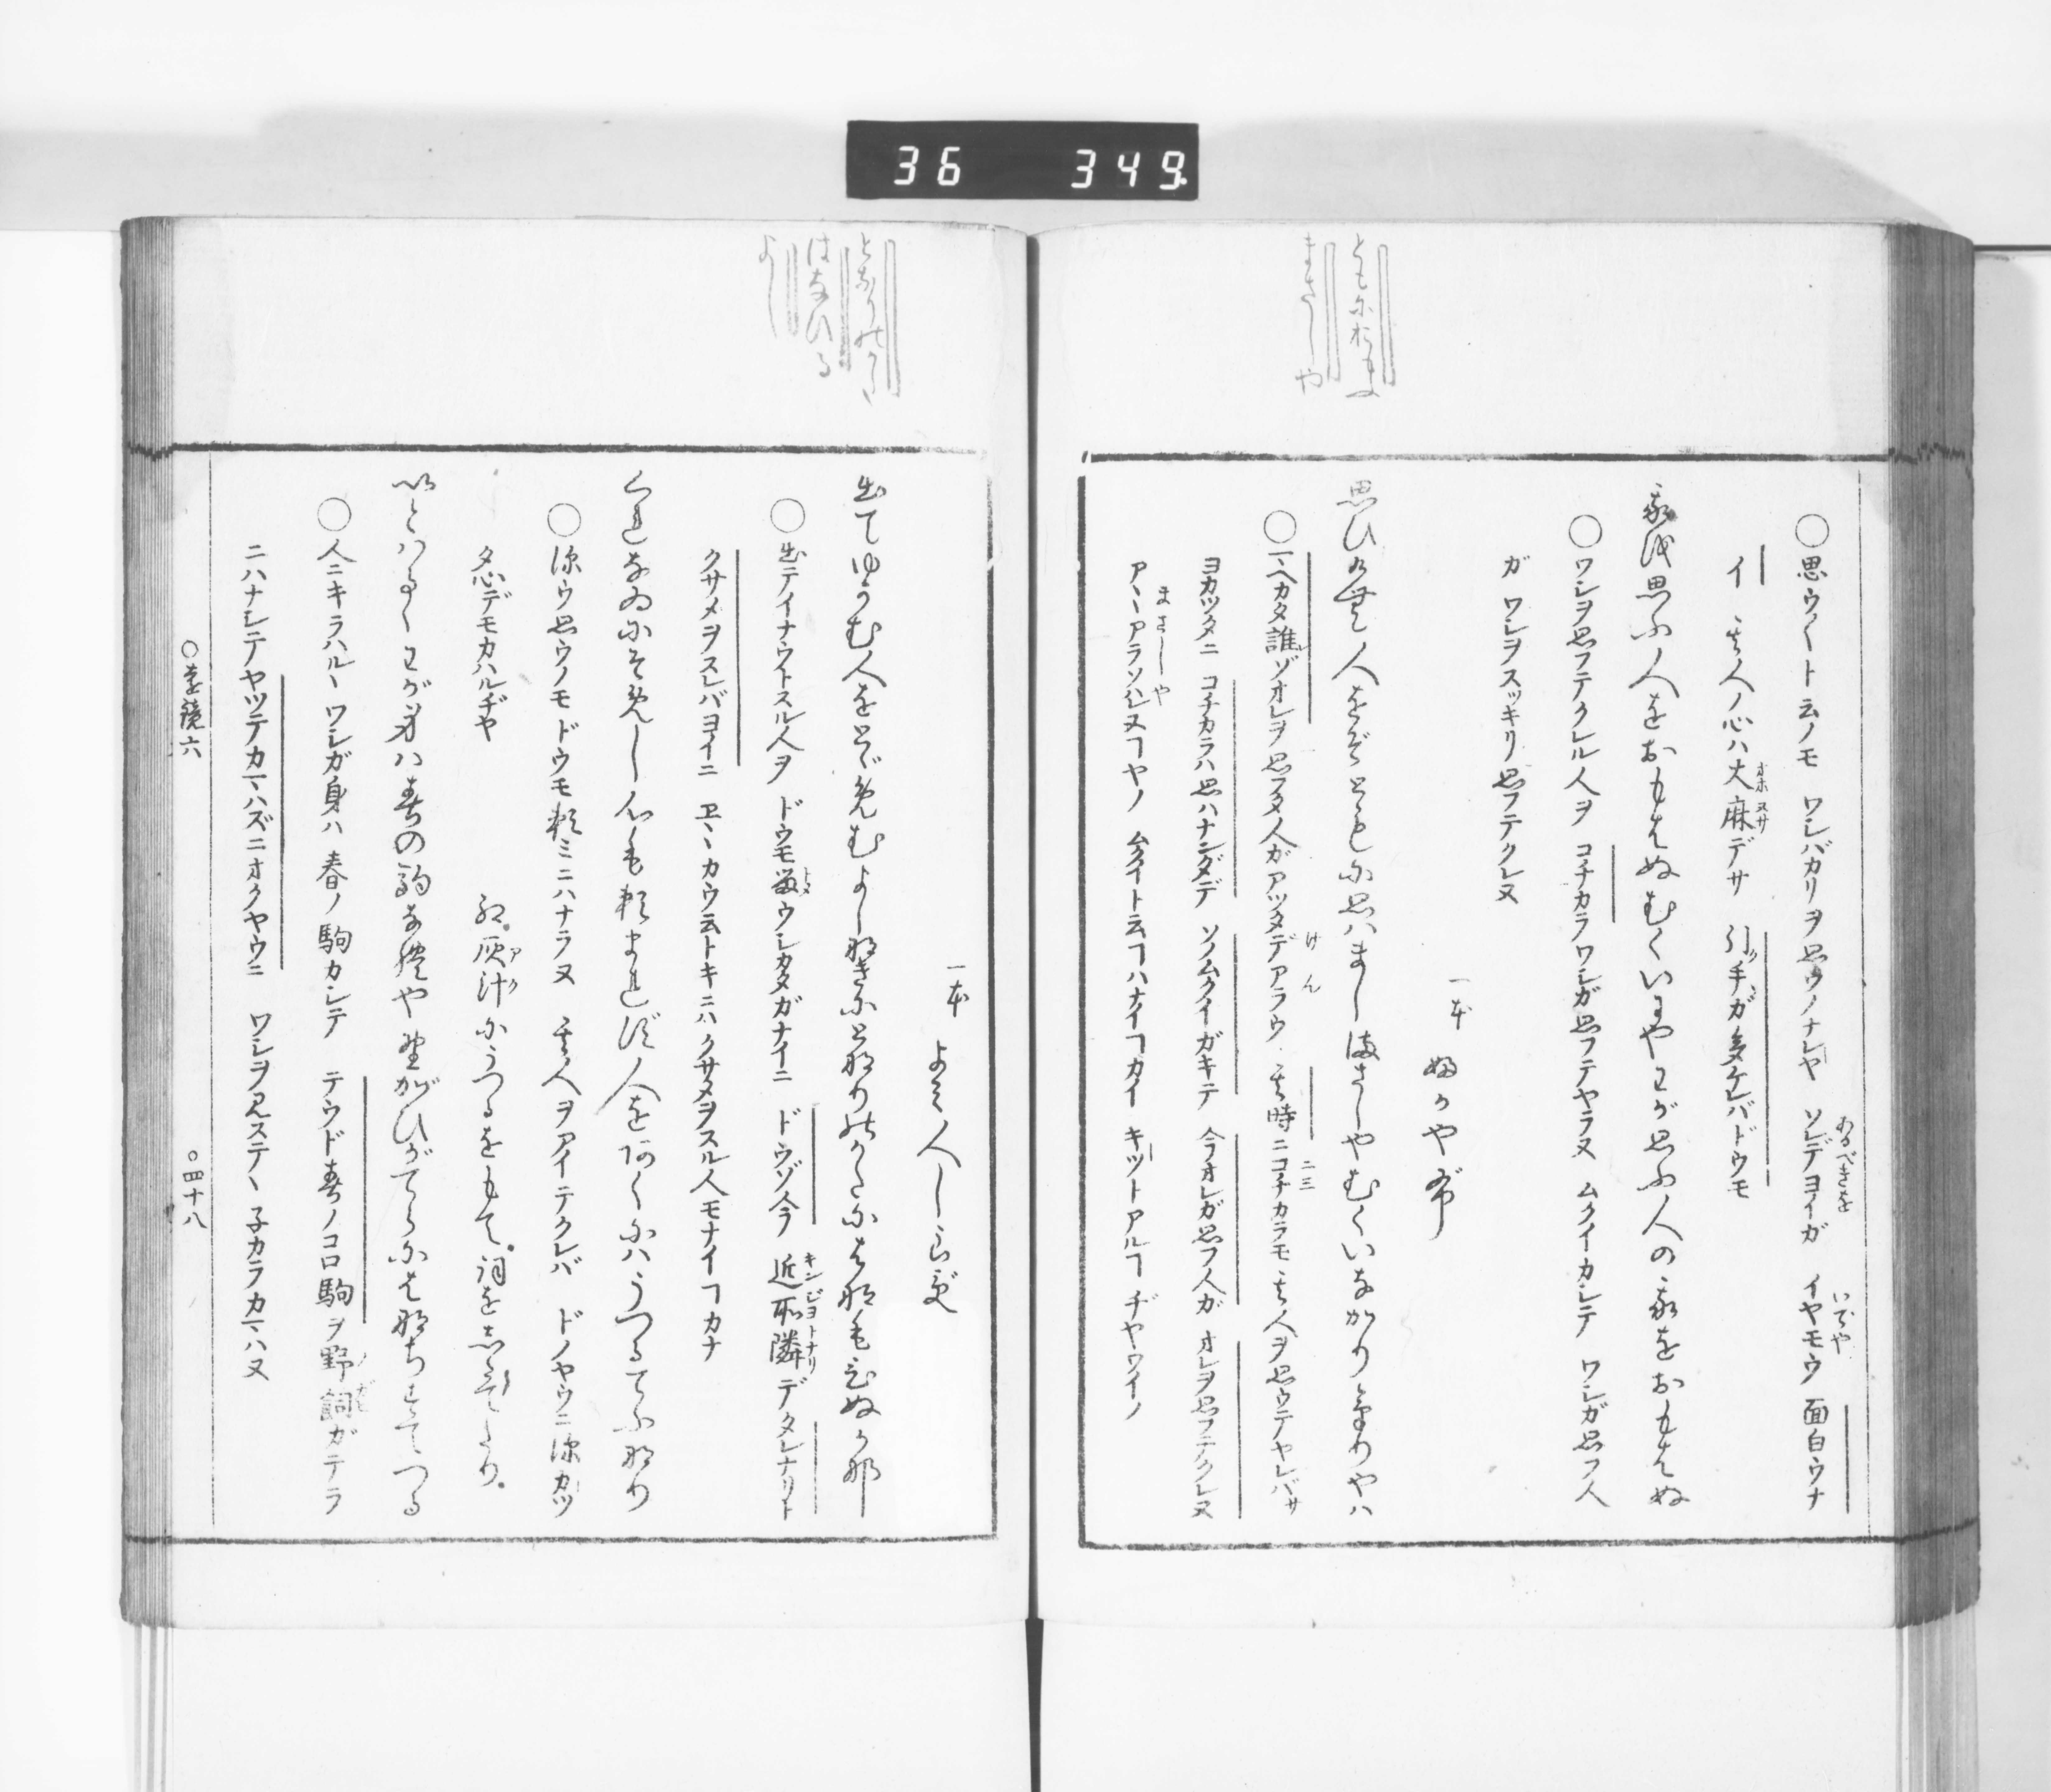 36 349
ともにおもは
まさしや
○思ウ〱ト云ノモ ワシバカリヲ思ウノナレヤ ソレデヨイガ イヤモウ 面白ウナ
あるべきを
いでや
イ 其人ノ心ハ大麻デサ 引手ガ多ケレバドウモ
オホヌサ
我を思ふ人をおもはぬむくいにやわが思ふ人の我をおもはぬ
○ワシヲ思フテクレル人ヲ コチカラワシガ思フテヤラヌ ムクイカシテ ワシガ思フ人
ガ ワシヲスッキリ思フテクレヌ
一本 ふかやぶ
思ひけむ人をぞともに思はましまさしやむくいなかりけりやは
○マヘカタ誰ゾオレヲ思フタ人ガアッタデアラウ 其時ニコチカラモ其人ヲ思ウテヤレバサ
けん
ヨカッタニ コチカラハ思ハナンダデ ソノムクイガキテ 今オレガ思フ人ガ オレヲ思フテクレヌ
まさしや
アヽアラソハレヌヿヤノ ムクイト云ヿハナイヿカイ キットアルヿヂヤワイノ
となりのかた
はなひる
よし
一本 よみ人しらず
出てゆかむ人をとゞめむよしなきにとなりのかたにはなもひぬかな
○出テイナウトスル人ヲ ドウモ留ウシカタガナイニ ドウゾ今 近所隣デタレナリト
トメ
キンジヨトナリ
クサメヲスレバヨイニ ヱヽカウ云トキニハ クサメヲスル人モナイヿカナ
くれなゐにそめし心も頼まれず人をあくにはうつるてふなり
○深ウ思ウノモ ドウモ頼ミニハナラヌ 其人ヲアイテクレバ ドノヤウニ深カッ
タ心デモカハルヂヤ
紅灰汁にうつるをもて詞をしたてたり
アク
いとはるゝわが身は春の駒なれや野がひがてらにはなちすてつる
○人ニキラハルヽワシガ身ハ 春ノ駒カシテ テウド春ノコロ駒ヲ野飼ガテラ
ニハナシテヤッテカマハズニオクヤウニ ワシヲ見ステヽ子カラカマハヌ
○遠鏡六 ○四十八